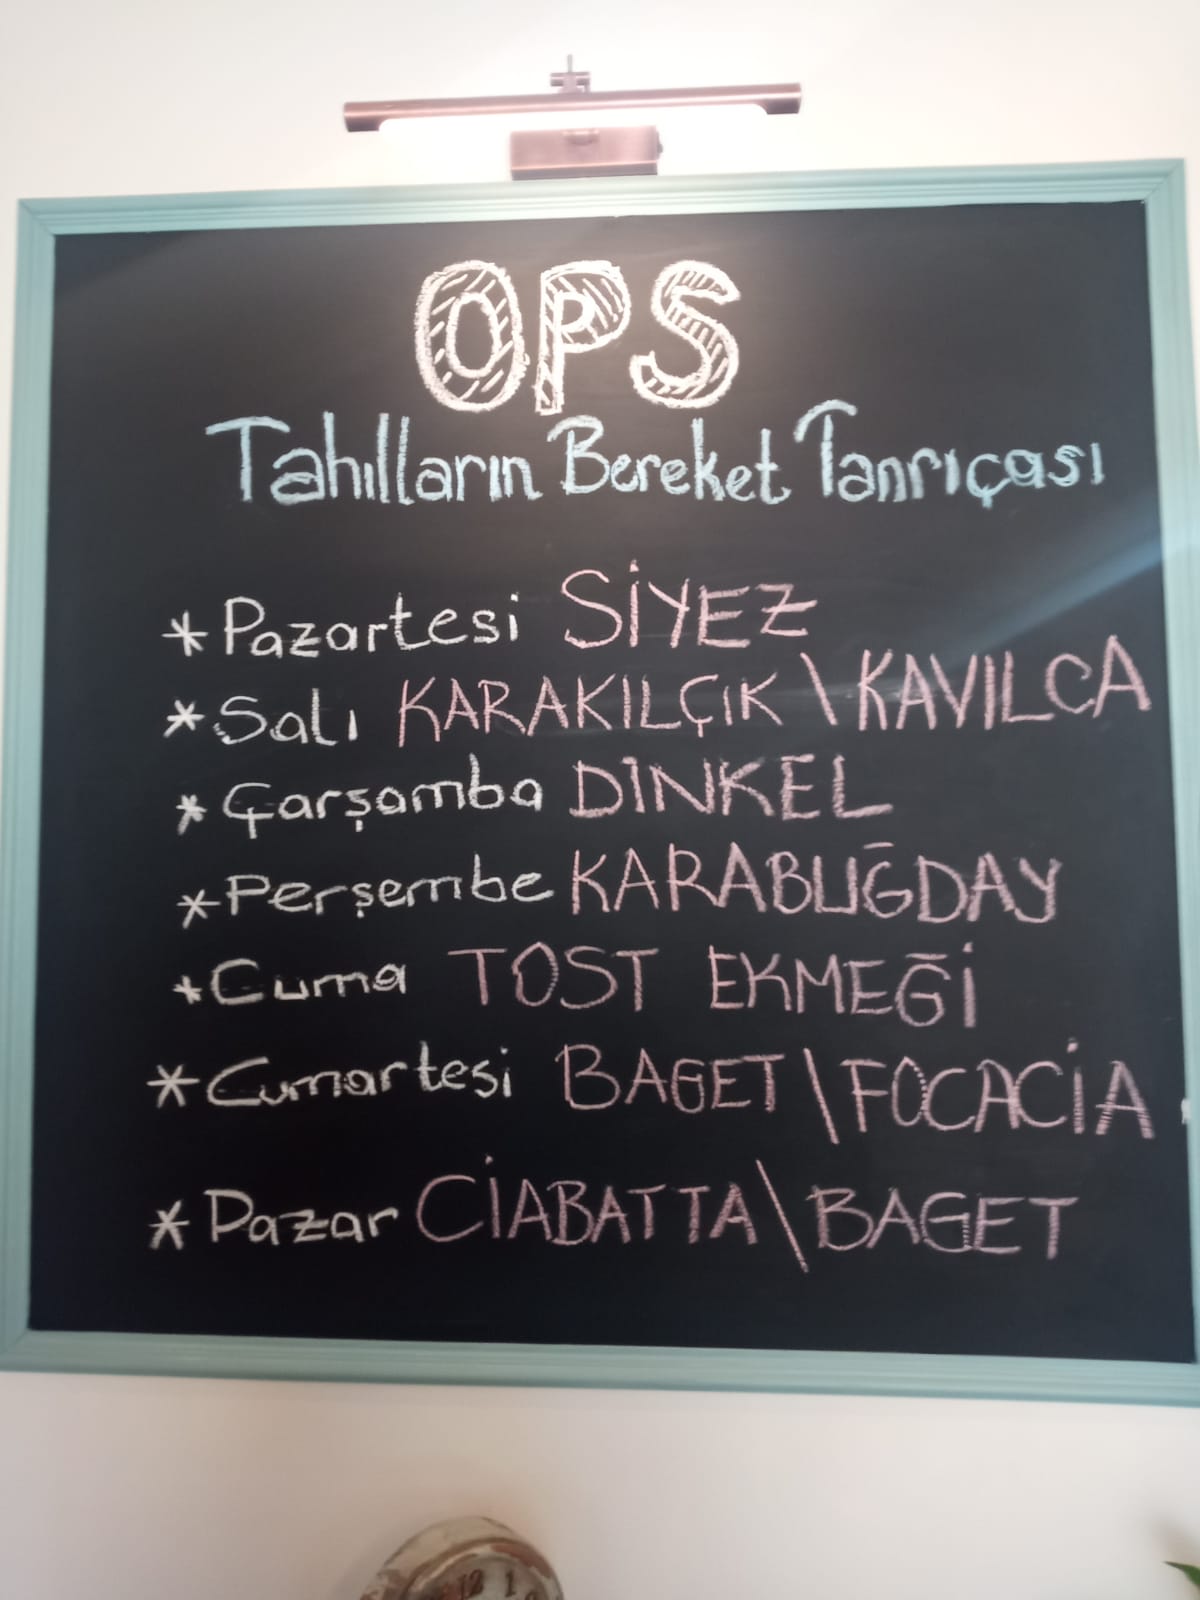 OPS
Tahılların Bereket Tanrıçası
* Pazartesi SİYEZ
* Salı KARAKILÇIK \ KAVILCA
* Çarşamba DİNKEL
* Perşembe KARABUĞDAY
* Cuma TOST EKMEĞİ
* Cumartesi BAGET \ FOCACİA
* Pazar CİABATTA \ BAGET
12 1